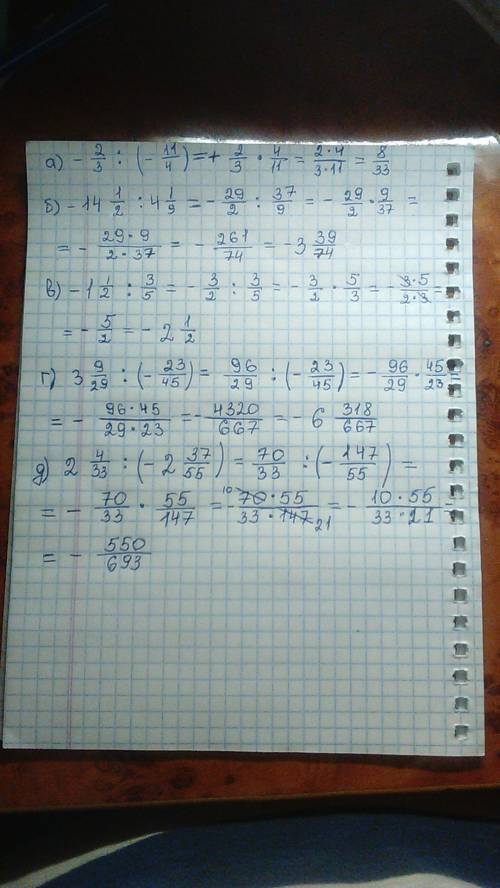 а) - 2/3 : (- 11/4) = + 2/3 · 4/11 = 2·4/3·11 = 8/33
б) - 14 1/2 : 4 1/9 = - 29/2 : 37/9 = - 29/2 · 9/37 =
= - 29·9/2·37 = - 261/74 = - 3 39/74
в) - 1 1/2 : 3/5 = - 3/2 : 3/5 = - 3/2 · 5/3 = - 3·5/2·3 =
= - 5/2 = - 2 1/2
г) 3 9/29 : (- 23/45) = 96/29 : (- 23/45) = - 96/29 · 45/23 =
= - 96·45/29·23 = - 4320/667 = - 6 318/667
д) 2 4/33 : (- 2 37/55) = 70/33 : (- 147/55) =
= - 70/33 · 55/147 = - 10 70·55/33·147 21 = - 10·55/33·21 =
= - 550/693